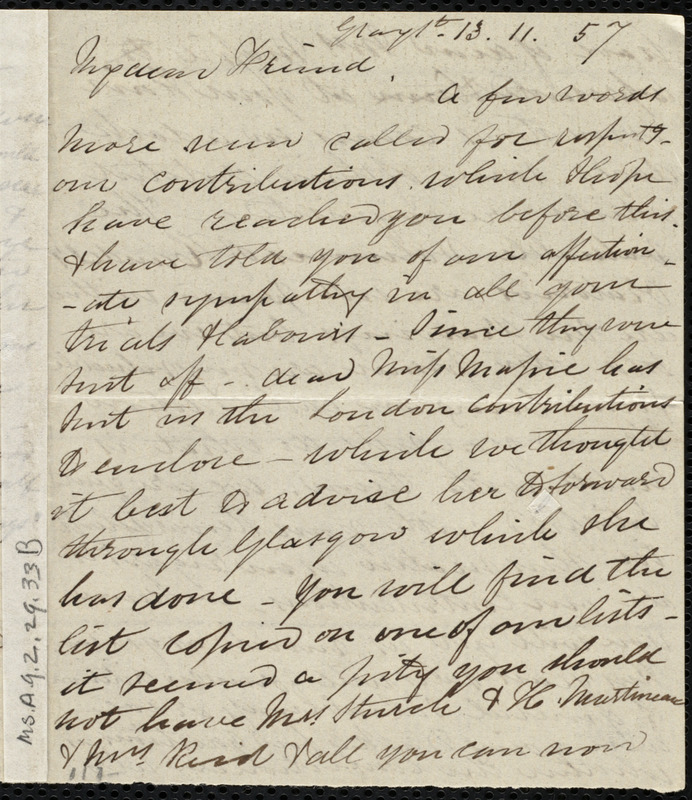 Grayst. 13. 11. 57
My dear Friend
A few words
more seem called for respectg-
our contributions. which I hope
have reached you before this.
& have told you of our affection-
-ate sympathy in all your
trials & labours - Since they were
sent off - dear Miss Massie has
sent us the London contributions
to enclose - which we thought
it best to advise her to forward
through Glasgow which she
has done - You will find the
list copied on one of our lists -
it seemed a pity you should
not have Mrs Sturch & H. Martineau
& Mrs. Reid & all you can now
Ms.A.9.2.29.33B